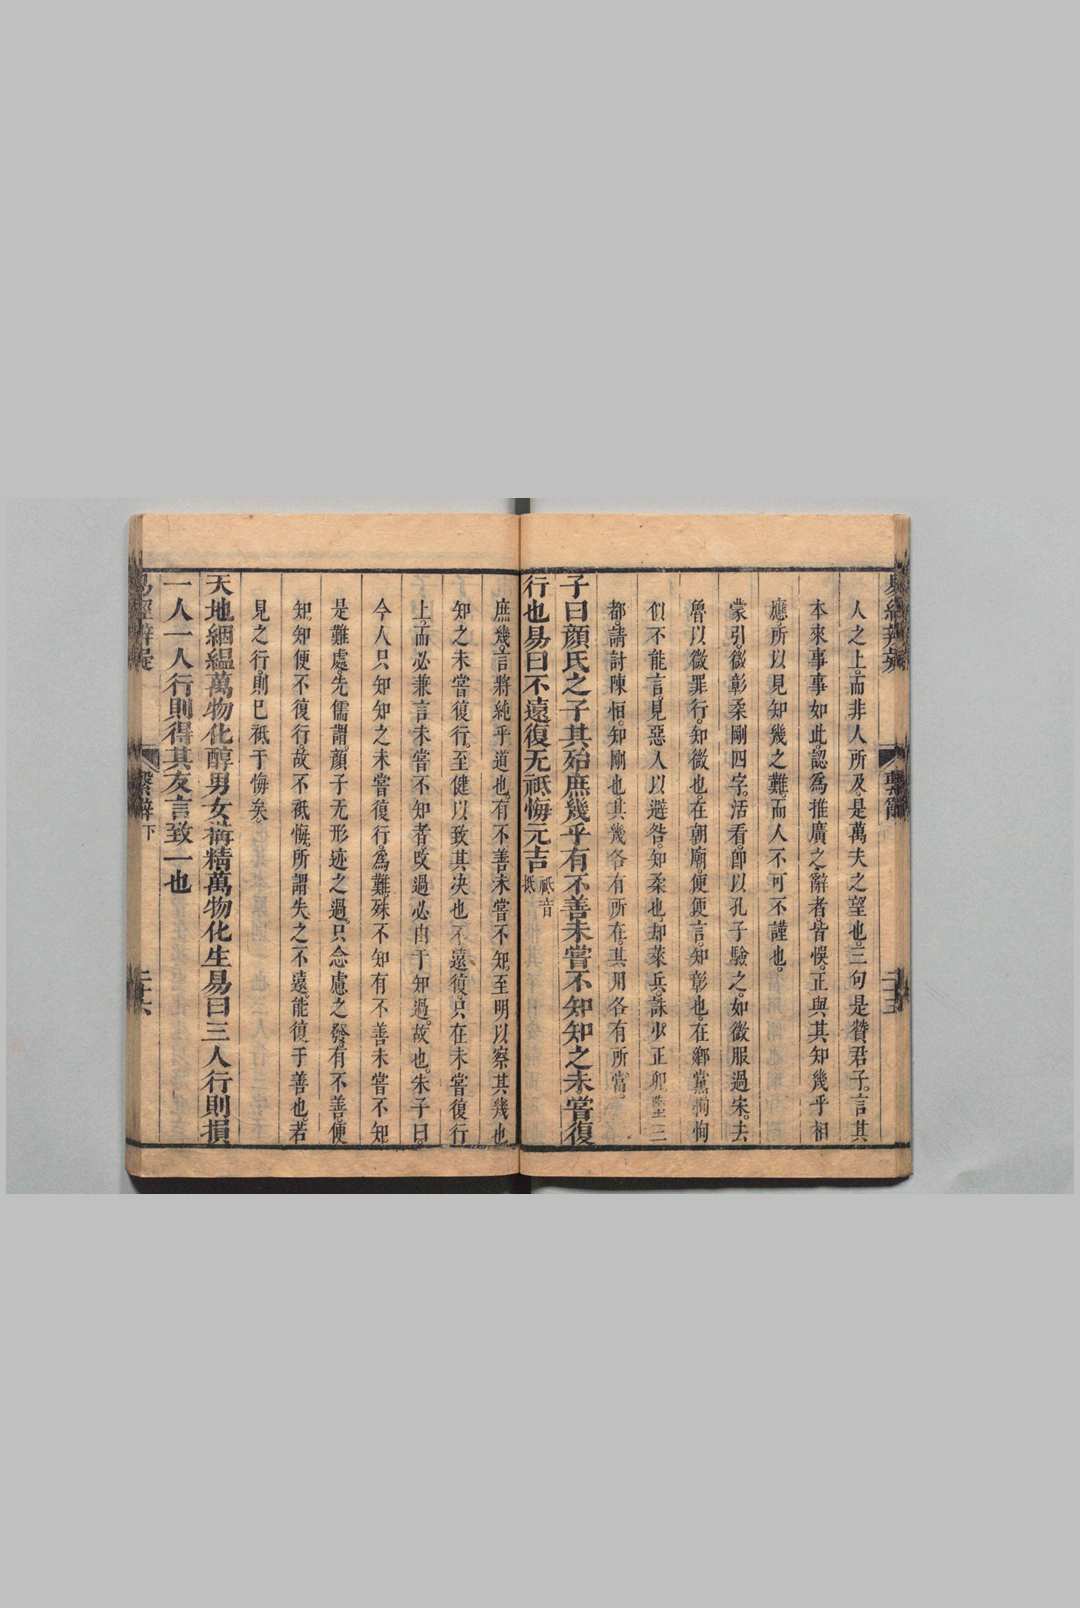 人之上。而非人所及。是萬夫之望也。三句是贊君子。言其
本來事事如此。認為推廣之辭者。皆悞。正與其知幾乎相
應。所以見知幾之難。而人不可不謹也。
蒙引。微彰柔剛四字。活看。卽以孔子驗之。如微服過宋。去
魯以微罪行。知微也。在朝廟便便言。知彰也。在鄉黨恂恂
似不能言。見惡人以避咎。知柔也。却萊兵。誅少正卯。墮三
都。請討陳恒。知剛也。其幾各有所在。其用各有所當。
子曰顏氏之子其殆庶幾乎有不善未嘗不知知之未嘗復
行也易曰不遠復无祗悔元吉 祗音
庶幾。言將純乎道也。有不善未嘗不知。至明以察其幾也
知之未嘗復行。至健以致其决也。不遠復。只在未嘗復行
上。而必兼言未嘗不知者。改過必由于知過。故也。朱子曰。
今人只知知之未嘗復行為難。殊不知有不善未嘗不知
是難處。先儒謂。顏子无形迹之過。只念慮之發。有不善。便
知。知便不復行。故不祗悔。所謂失之不遠。能復于善也。若
見之行。則已祗于悔矣。
天地絪縕萬物化醇男女搆精萬物化生易曰三人行則損
一人一人行則得其友言致一也
易經辯疑
繫辭下
二十六